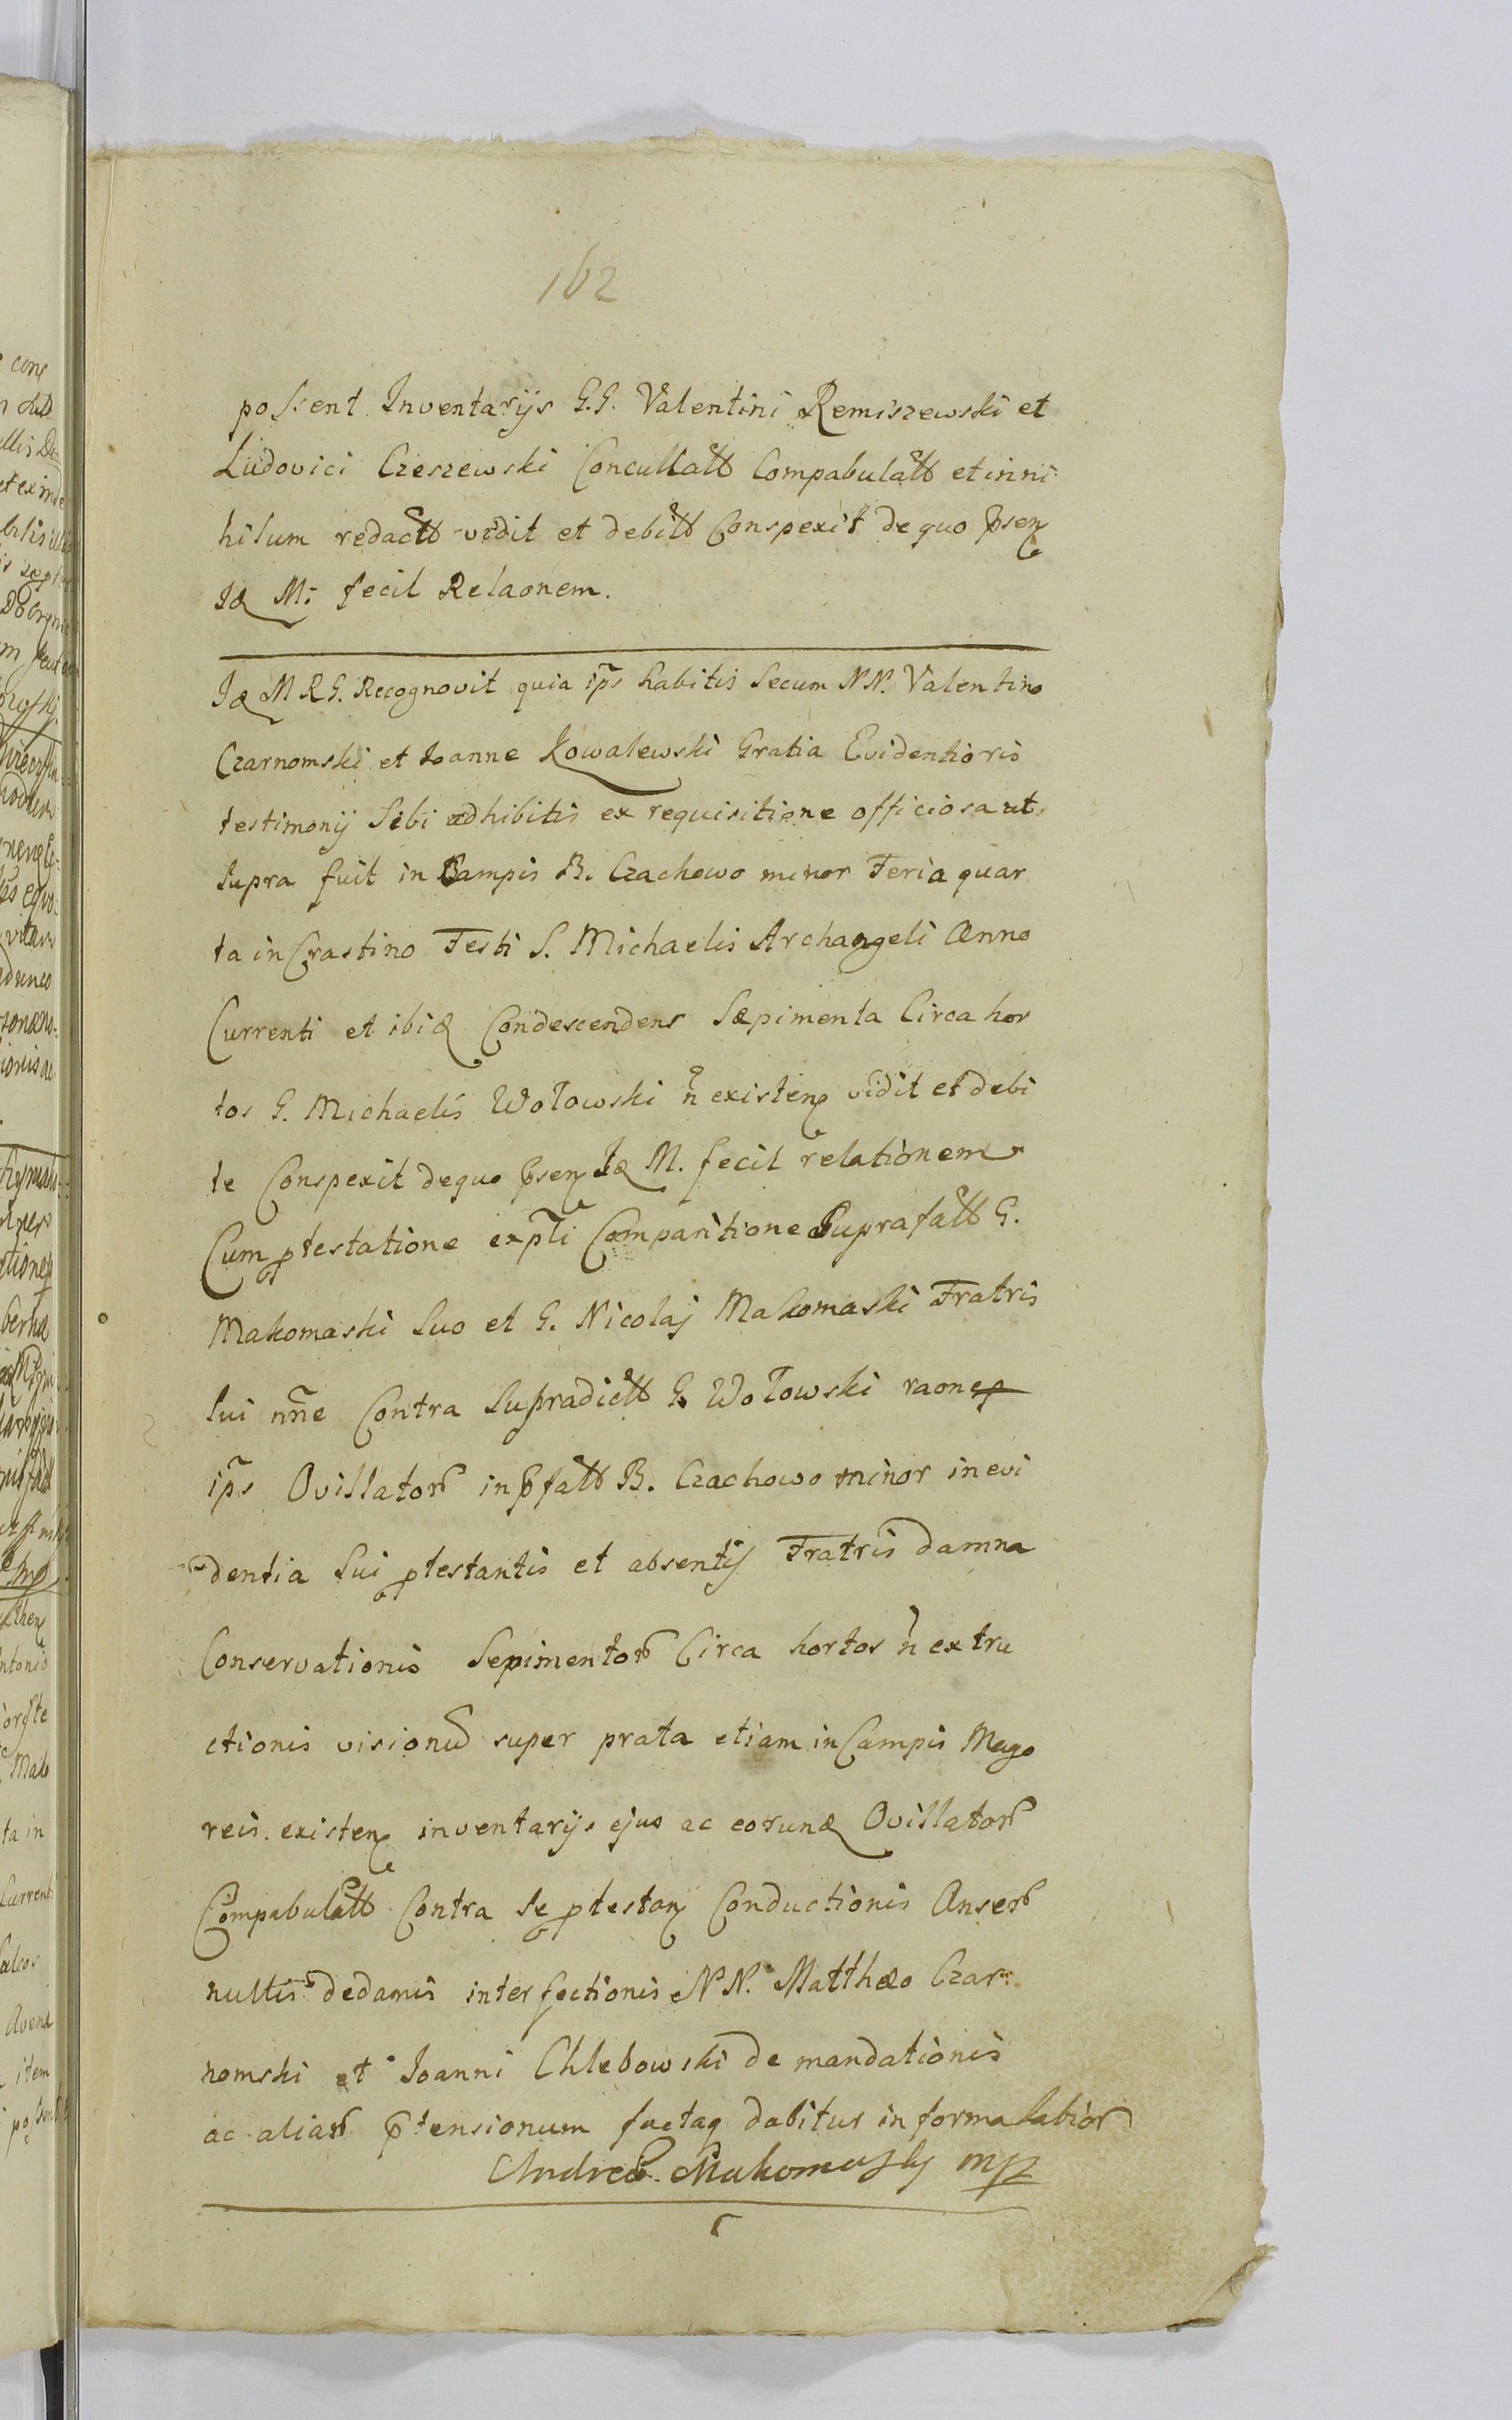 162
possent Inventarijs G.G. Valentini Remiszewski et
Ludovici Czeszewski Conculcatt Compabulatt et in ni
hilum redactt vidit et debitt Conspexit de quo p̄sen
Id M: fecit Relaonem.
Id M R G. Recognovit quia ip̃s habitis Secum NN. Valentino
Czarnomski et Joanne Kowalewski Gratia Evidentioris
testimonij Sibi adhibitis ex requisitione officiosa ut
supra fuit in Campis B. Czachowo minor Feria quar
ta in Crastino Festi S. Michaelis Archangeli Anno
Currenti et ibid Condescendens Sæpimenta Circa hor
tos G. Michaelis Wołowski ñ existen vidit et debi
te Conspexit de quo p̄sen Id M. fecit relationem
Cum ptestatione exp̃ti Comparitione Suprafatt G.
Makomaski Suo et G. Nicolaj Makomaski Fratris
sui nñe Contra Supradictt G. Wołowski raone
ip̃s Ovillator in p̄fatt B. Czachowo minor in evi
dentia Sui ptestantis et absentis Fratris damna
Conservationis Sepimentor Circa hortos ñ extru
ctionis visionũ super prata etiam in Campis Mago
reis existen inventarijs ejus ac eorund Ovillator
Compabulatt Contra se ptestan Conductionis Anser
nultis dedamis interfectionis NN. Matthæo Czar
nomski et Joanni Chlebowski de mandationis
ac aliar p̄tensionum factaq dabitur in forma latior
Andreas Makomasky mp